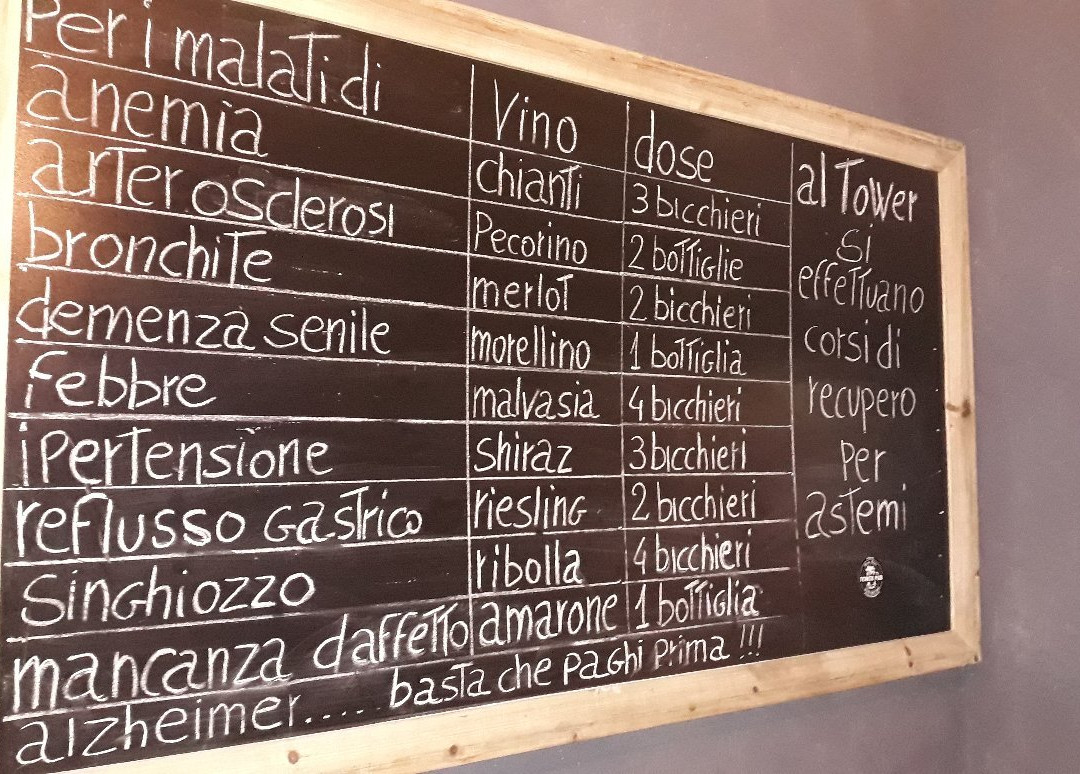 Per i malati di Vino dose
anemia chianti 3 bicchieri
arterosclerosi Pecorino 2 bottiglie
bronchite merlot 2 bicchieri
demenza senile morellino 1 bottiglia
febbre malvasia 4 bicchieri
ipertensione shiraz 3 bicchieri
reflusso gastrico riesling 2 bicchieri
singhiozzo ribolla 4 bicchieri
mancanza daffetto amarone 1 bottiglia
alzheimer..... basta che paghi prima !!!
al Tower
si
effettuano
corsi di
recupero
per
astemi